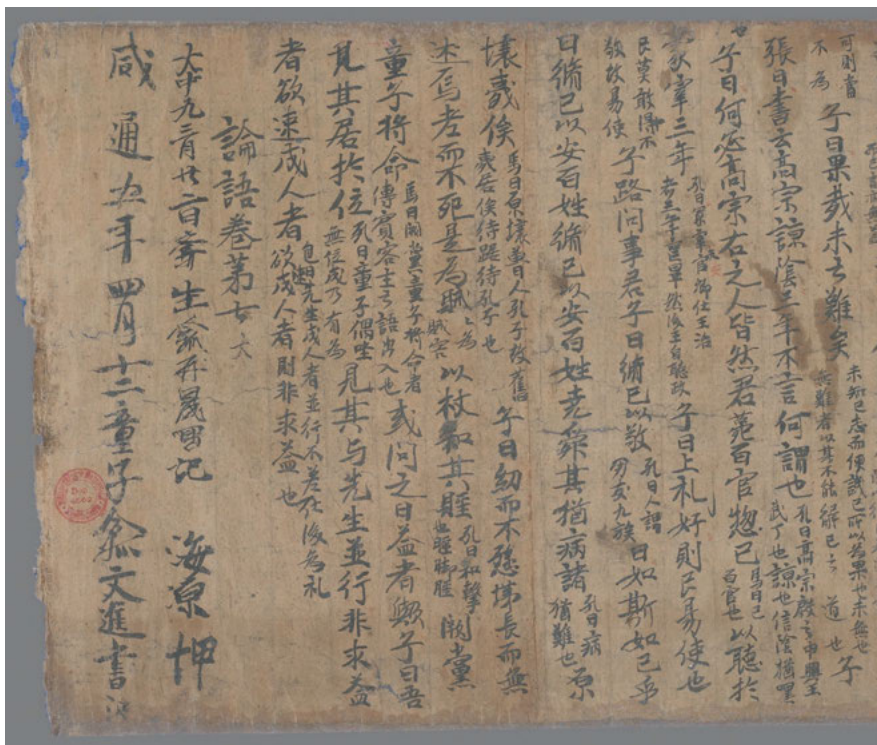 可則當不為子曰果哉未之難矣未知己志而便譏己所以為果也未無也無難者以其不能解己之道也子
張曰書云高宗諒陰三年不言何謂也孔曰高宗殷之中興王武丁也諒也信陰猶嘿
子曰何必高宗右之人皆然君薨百官惣己馬曰己百官也以聽於
冢宰三年孔曰冢宰官卿仕王治者三年喪畢然後王自聽政子曰上礼好則民易使也
民莫敢得不敬故易使子路問事君子曰脩己以敬孔曰人謂朋友九族曰如斯如已乎
曰脩己以安百姓脩己以安百姓堯舜其猶病諸孔曰病猶難也原
壤夷俟馬曰原壤魯人孔子故舊也夷居俟待踞待孔子也子曰幼而不愻悌長而無
述焉老而不死是為賊為賊害以杖叩其脛孔曰叩擊也脛脚脛闕黨
童子將命馬曰闕黨童子將命者傳賓客主之語出入也或問之曰益者與子曰吾
見其居於位孔曰童子偶坐無位成乃有為見其与先生並行非求益
者欲速成人者包曰先生成人者並行不差在後為礼欲成人者則非求益也
論語卷第七
大中九三月廿日學生令狐再晟記 海原押
咸通五年四月十二童子令狐文進書